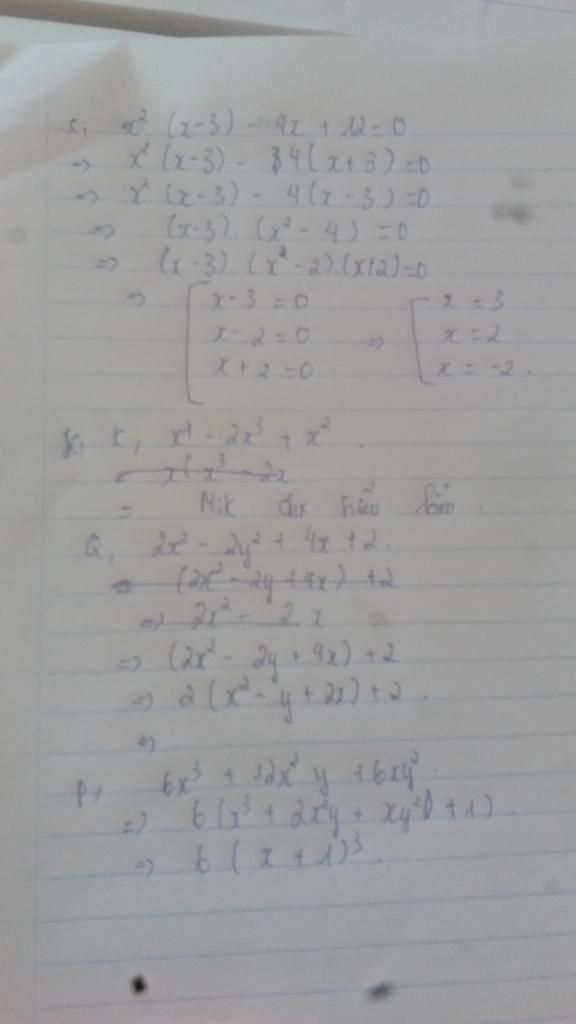 x, x² (x-3) - 4x + 12 = 0
=> x² (x-3) - 4(x+3) = 0
=> x² (x-3) - 4(x-3) = 0
=> (x-3). (x² - 4) = 0
=> (x-3). (x - 2).(x+2) = 0
=> [ x-3 = 0 => [ x = 3
x-2 = 0 x = 2
x+2 = 0 x = -2.
K, x⁴ - 2x³ + x².
x(x³ - 2x
= Mik chx hiểu lắm.
Q, 2x² - 2y² + 4x + 2.
(2x² - 2y + 4x) + 2
=> 2x² - 2x
=> (2x² - 2y + 4x) + 2
=> 2(x² - y + 2x) + 2.
=>
P, 6x³ + 12x²y + 6xy².
=> 6(x³ + 2x²y + xy² + 1).
=> 6(x + 1)³.